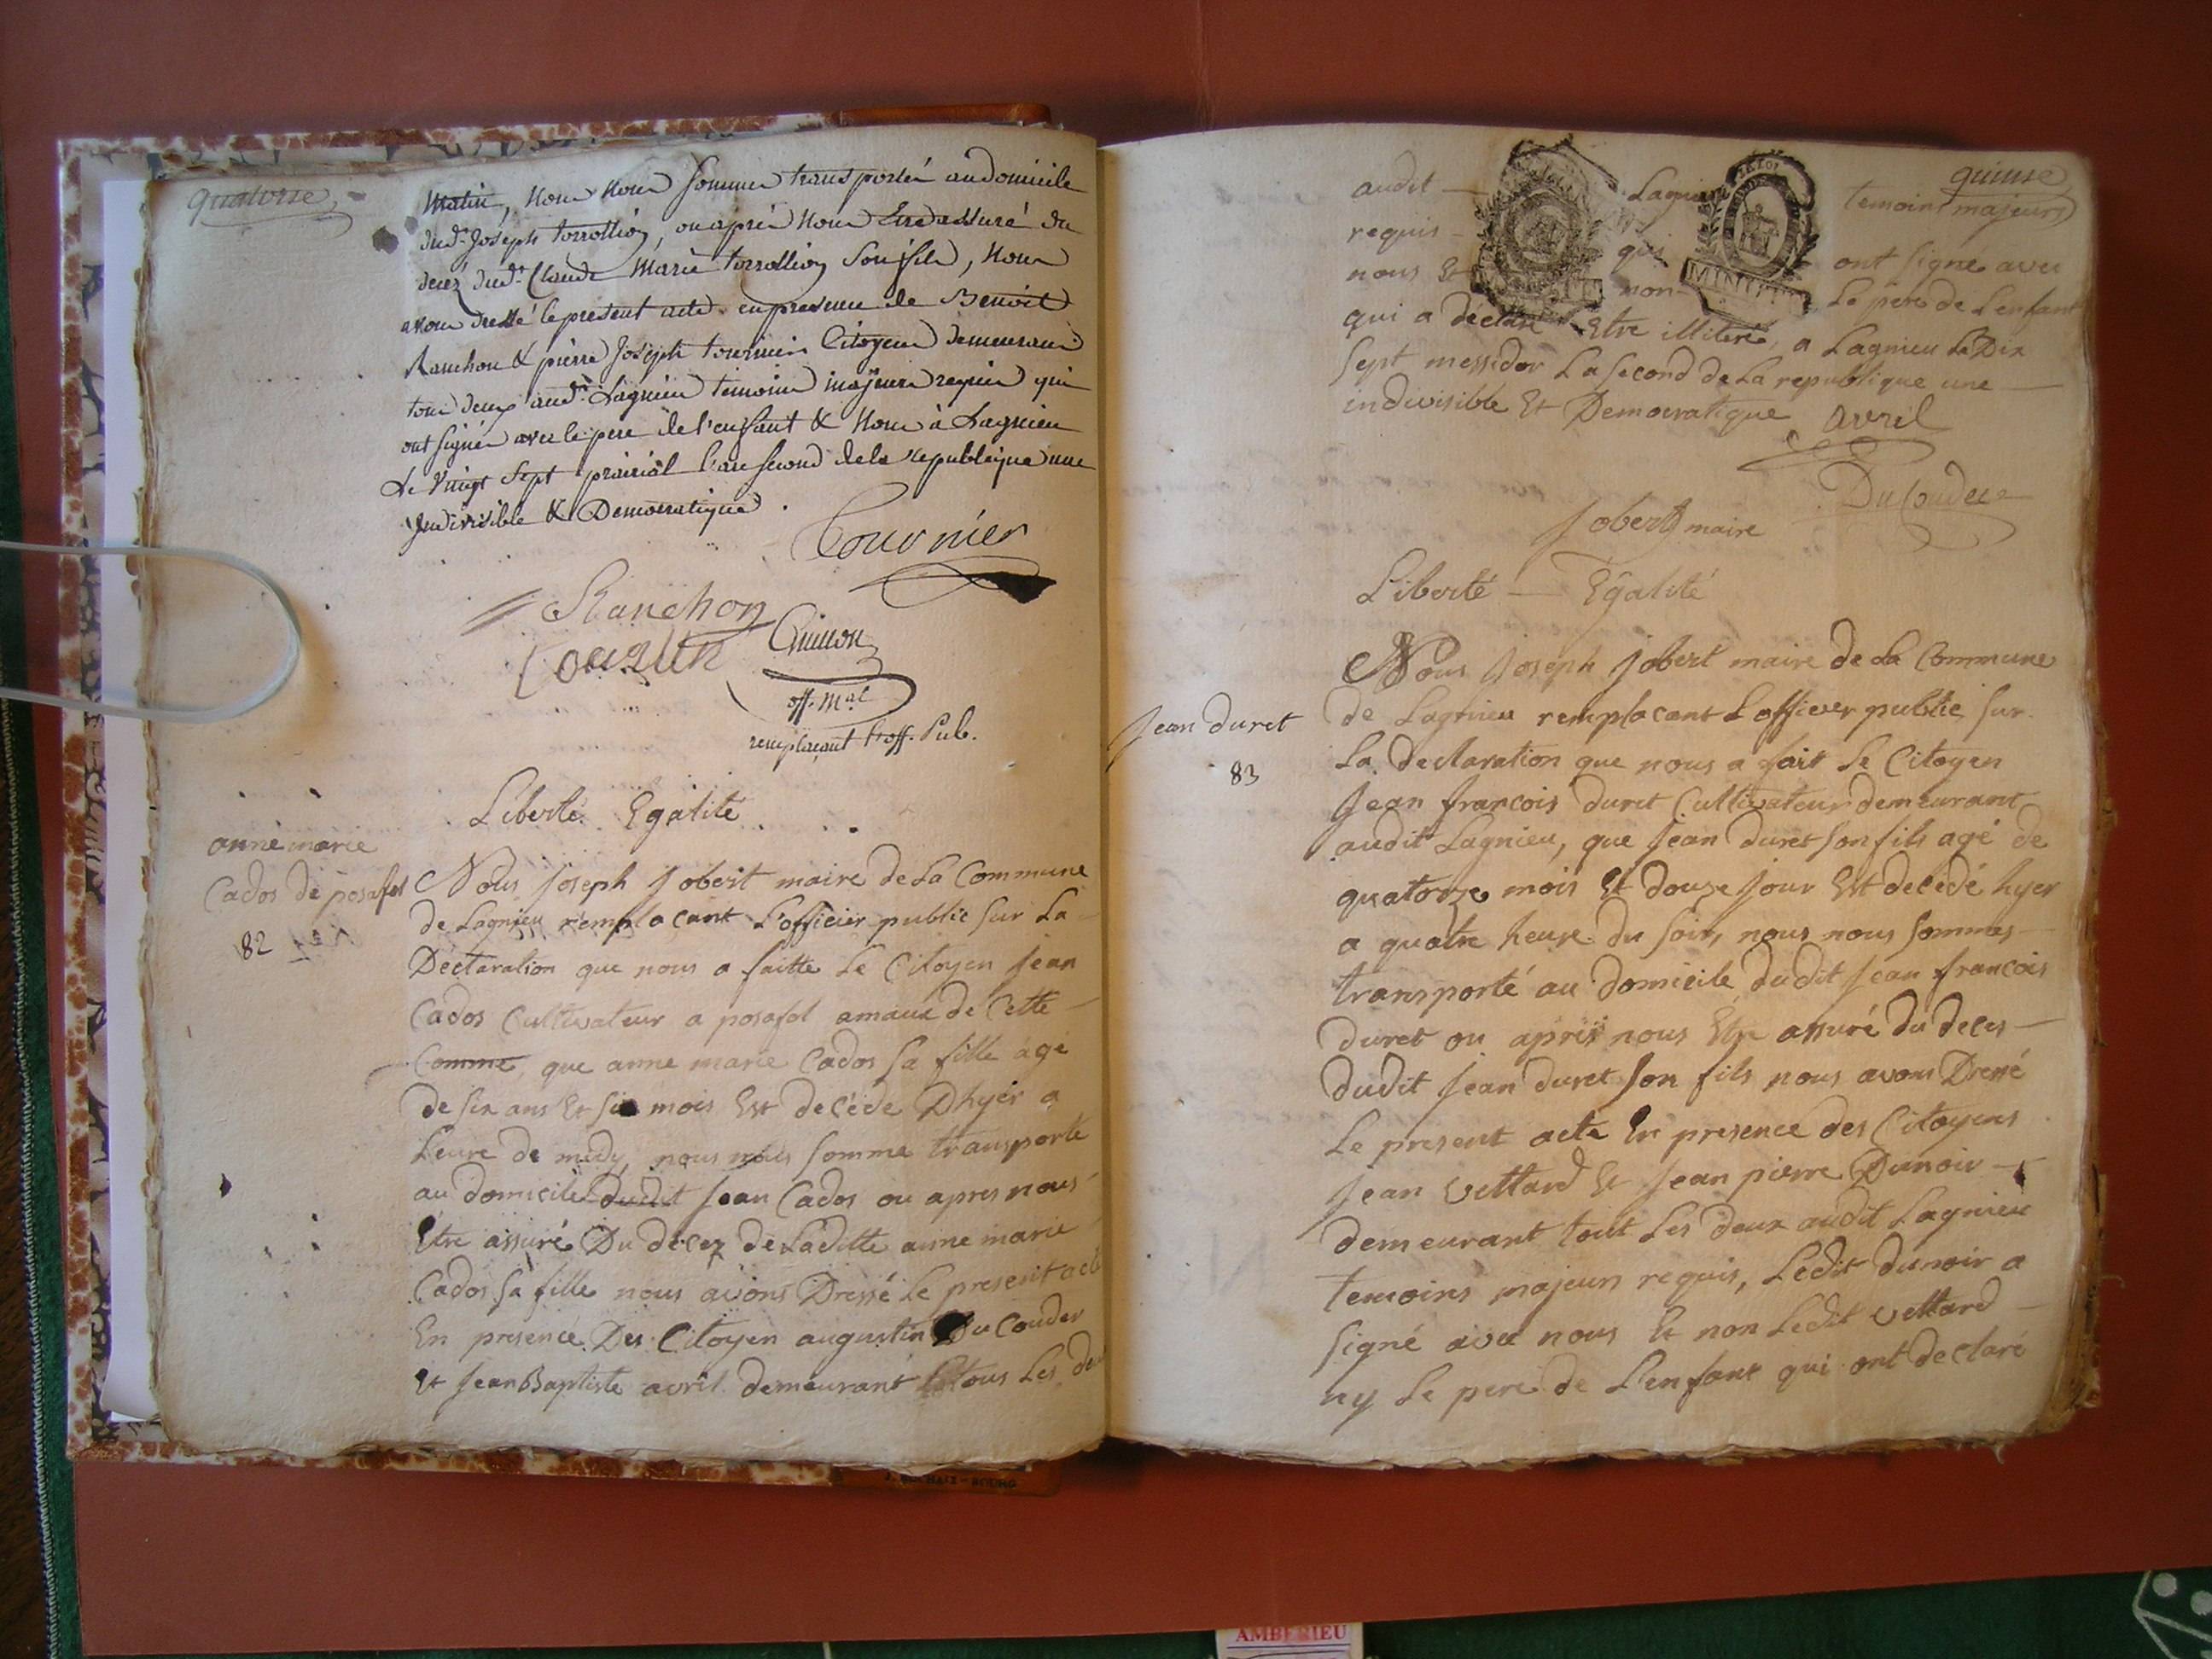 quatorse
matin, nous nous sommes transportés au domicile
dud. Joseph torrollion, ou après nous être assuré du
decez dud. Claude Marie torrollion son fils, nous
avons dressé le present acte en presence de Benoit
Ranchon & pierre Joseph tournier Citoyens demeurans
tous deux aud. Lagnieu temoins majeurs requis qui
ont signés avec le pere de l'enfant & nous à Lagnieu
Le vingt sept prairial l'an second de la republique une
Indivisible & Democratique.
Tournier
Ranchon
off. Mal
remplaçant l'off. Pub.
Liberté Egalité
anne marie
Cados de posafol
82
Nous Joseph Jobert maire de La Commune
de Lagnieu remplacant L'officier public sur La
Déclaration que nous a faitte Le Citoyen Jean
Cados Cultivateur a posafol amaux de Cette
Comme, que anne marie Cados sa fille agé
de six ans Et six mois Est decédé Dhyér a
Leure de midy, nous nous somme transporté
au domicile dudit Jean Cados ou apres nous
Etre assuré Du décez de Laditte anne marie
Cados sa fille nous avons Dressé Le present acte
En presence Des Citoyen augustin Du Couder
Et Jean Baptiste avril demeurant tous Les deux
quinse
audit Lagnieu temoins majeurs
requis qui ont signé avec
nous Et non Le pere de L'enfant
qui a déclaré Etre illiteré, a Lagnieu Le Dix
sept messidor La second de La republique une
indivisible Et Democratique avril
Du Couder
Jobert maire
Liberté - Egalité
Jean duret
83
Nous Joseph Jobert maire de La Commune
de Lagnieu remplacant L officier public sur
La declaration que nous a fait Le Citoyen
Jean francois duret Cultivateur demeurant
audit Lagnieu, que Jean duret son fils agé de
quatorze mois Et douze jour Est decédé hyer
a quatre heure du soir, nous nous sommes
transporté au domicile dudit Jean francois
duret ou aprés nous Etre assuré du deces
dudit Jean duret son fils nous avons Dressé
Le present acte En presence des Citoyens
Jean vettard Et Jean pierre Dunoir
demeurant tout Les deux audit Lagnieu
temoins majeurs requis, Ledit dunoir a
signé avec nous Et non Ledit vettard
ny Le pere de L'enfant qui ont declaré
AMBERIEU